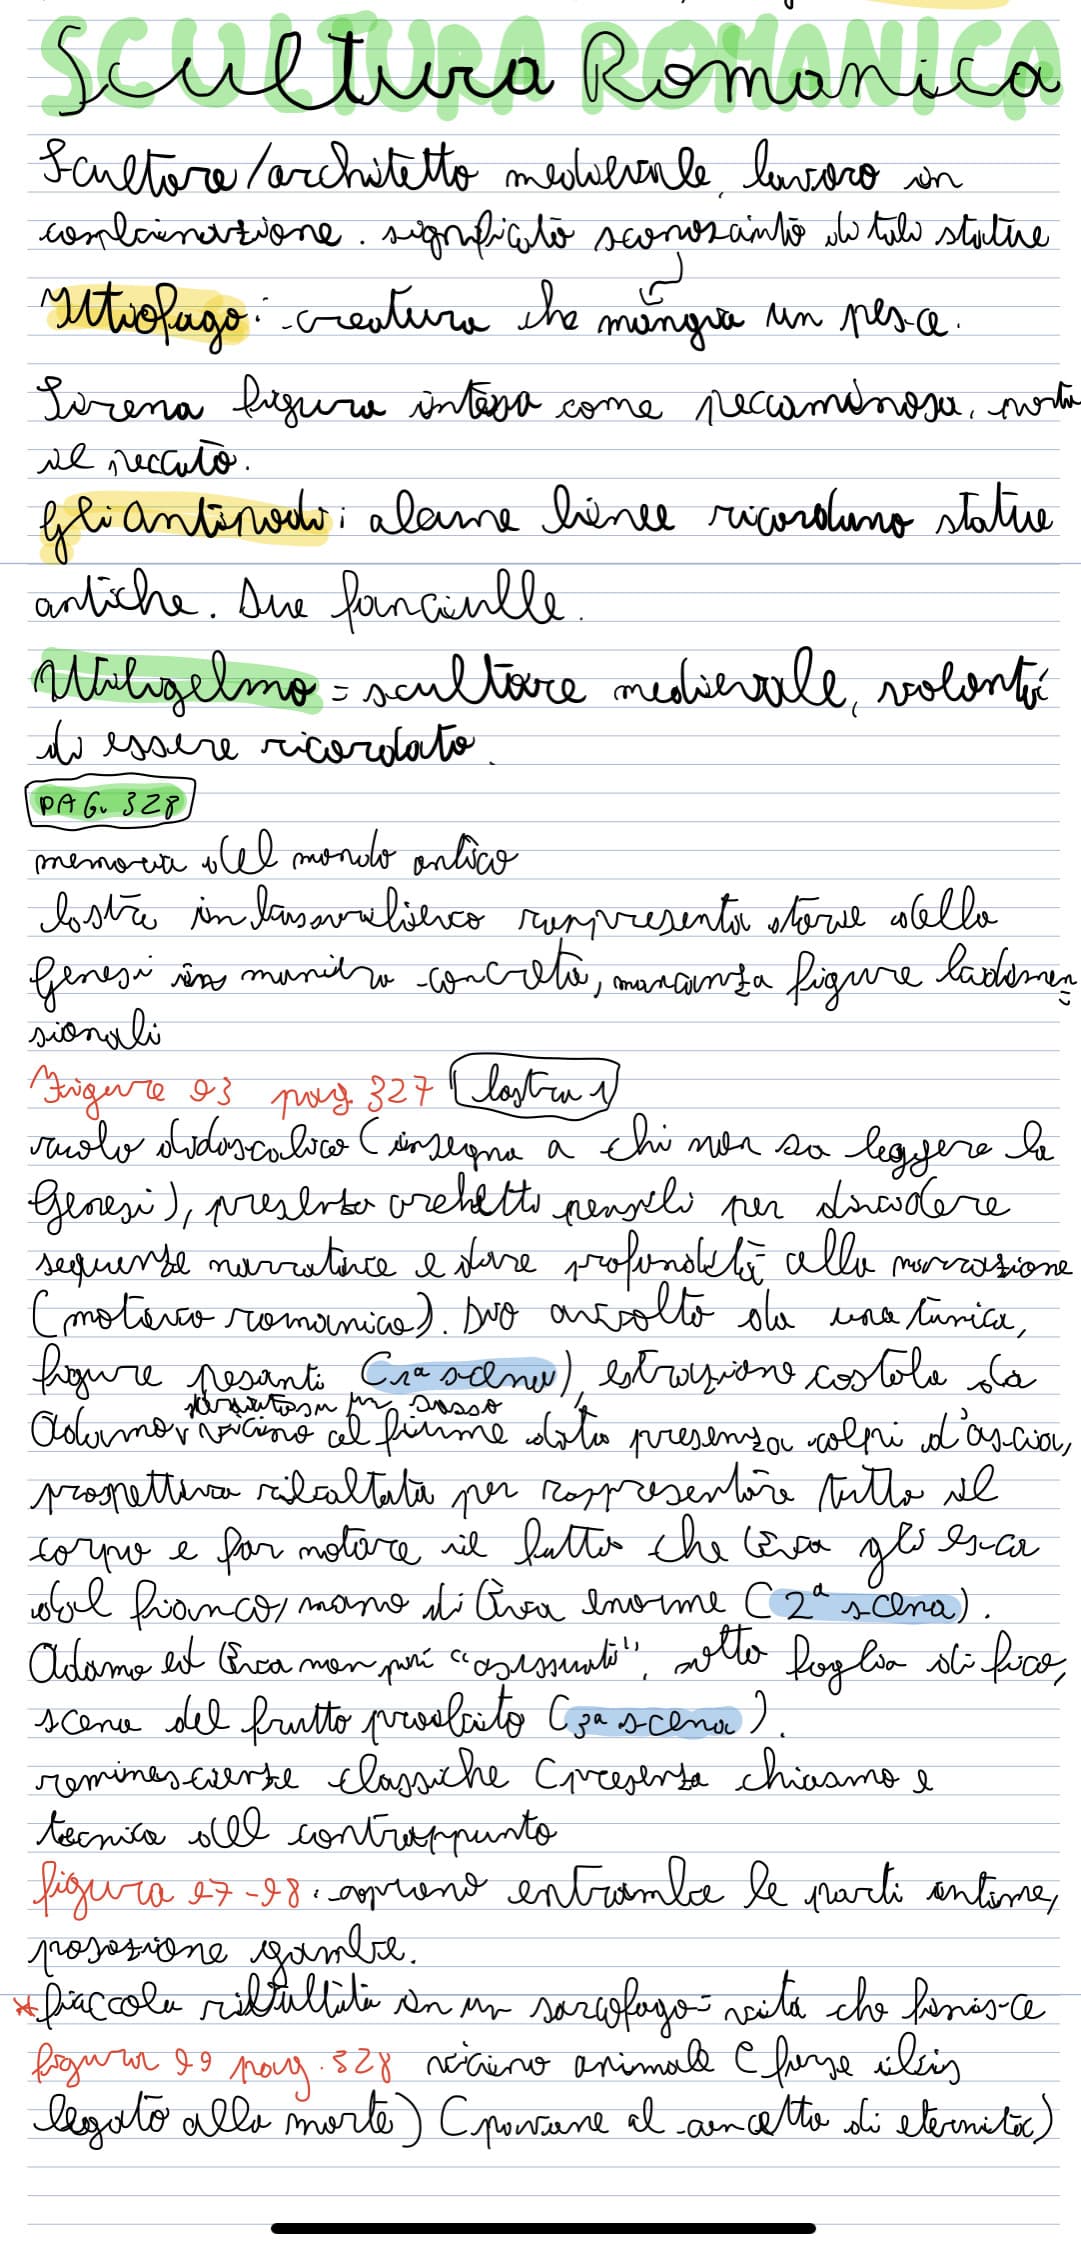 SCULTURA ROMANICA
Scultore/architetto medievale, lavoro in
combinazione. significato sconosciuto di tali statue
Ittiofago: creatura che mangia un pesce.
Sirena figura intesa come peccaminosa, porta
il peccato.
Gli antipodi: alcune linee ricordano statue
antiche. Due fanciulle.
Wiligelmo = scultore medievale, volontà
di essere ricordato.
PAG. 328
memoria del mondo antico
lastre in bassorilievo rappresenta storie della
Genesi in maniera concreta, mancanza figure bidimen=
sionali
Figure 93 pag 327 (lastra 1)
ruolo didascalico (insegna a chi non sa leggere la
Genesi), presenta archetti pensili per dividere
sequenze narrative e dare profondità alla narrazione
(motivo romanico). Dio avvolto da una tunica,
figure pesanti (1ª scena), estrazione costola da
su un sasso
Adamo, vicino al fiume data presenza colpi d'ascia,
prospettiva ribaltata per rappresentare tutto il
corpo e far notare il fatto che Eva gli esca
dal fianco, mano di Eva enorme (2ª scena).
Adamo ed Eva non più "asessuati", sotto foglia di fico,
scena del frutto proibito (3ª scena).
reminescienze classiche (presenza chiasmo e
tecnica del contrappunto
figura 97-98: coprono entrambe le parti intime,
posizione gambe.
*fiaccola ribaltata in un sarcofago = vita che finisce
figura 99 pag. 328 vicino animale (forse ibis
legato alla morte) (pavone al concetto di eternità)